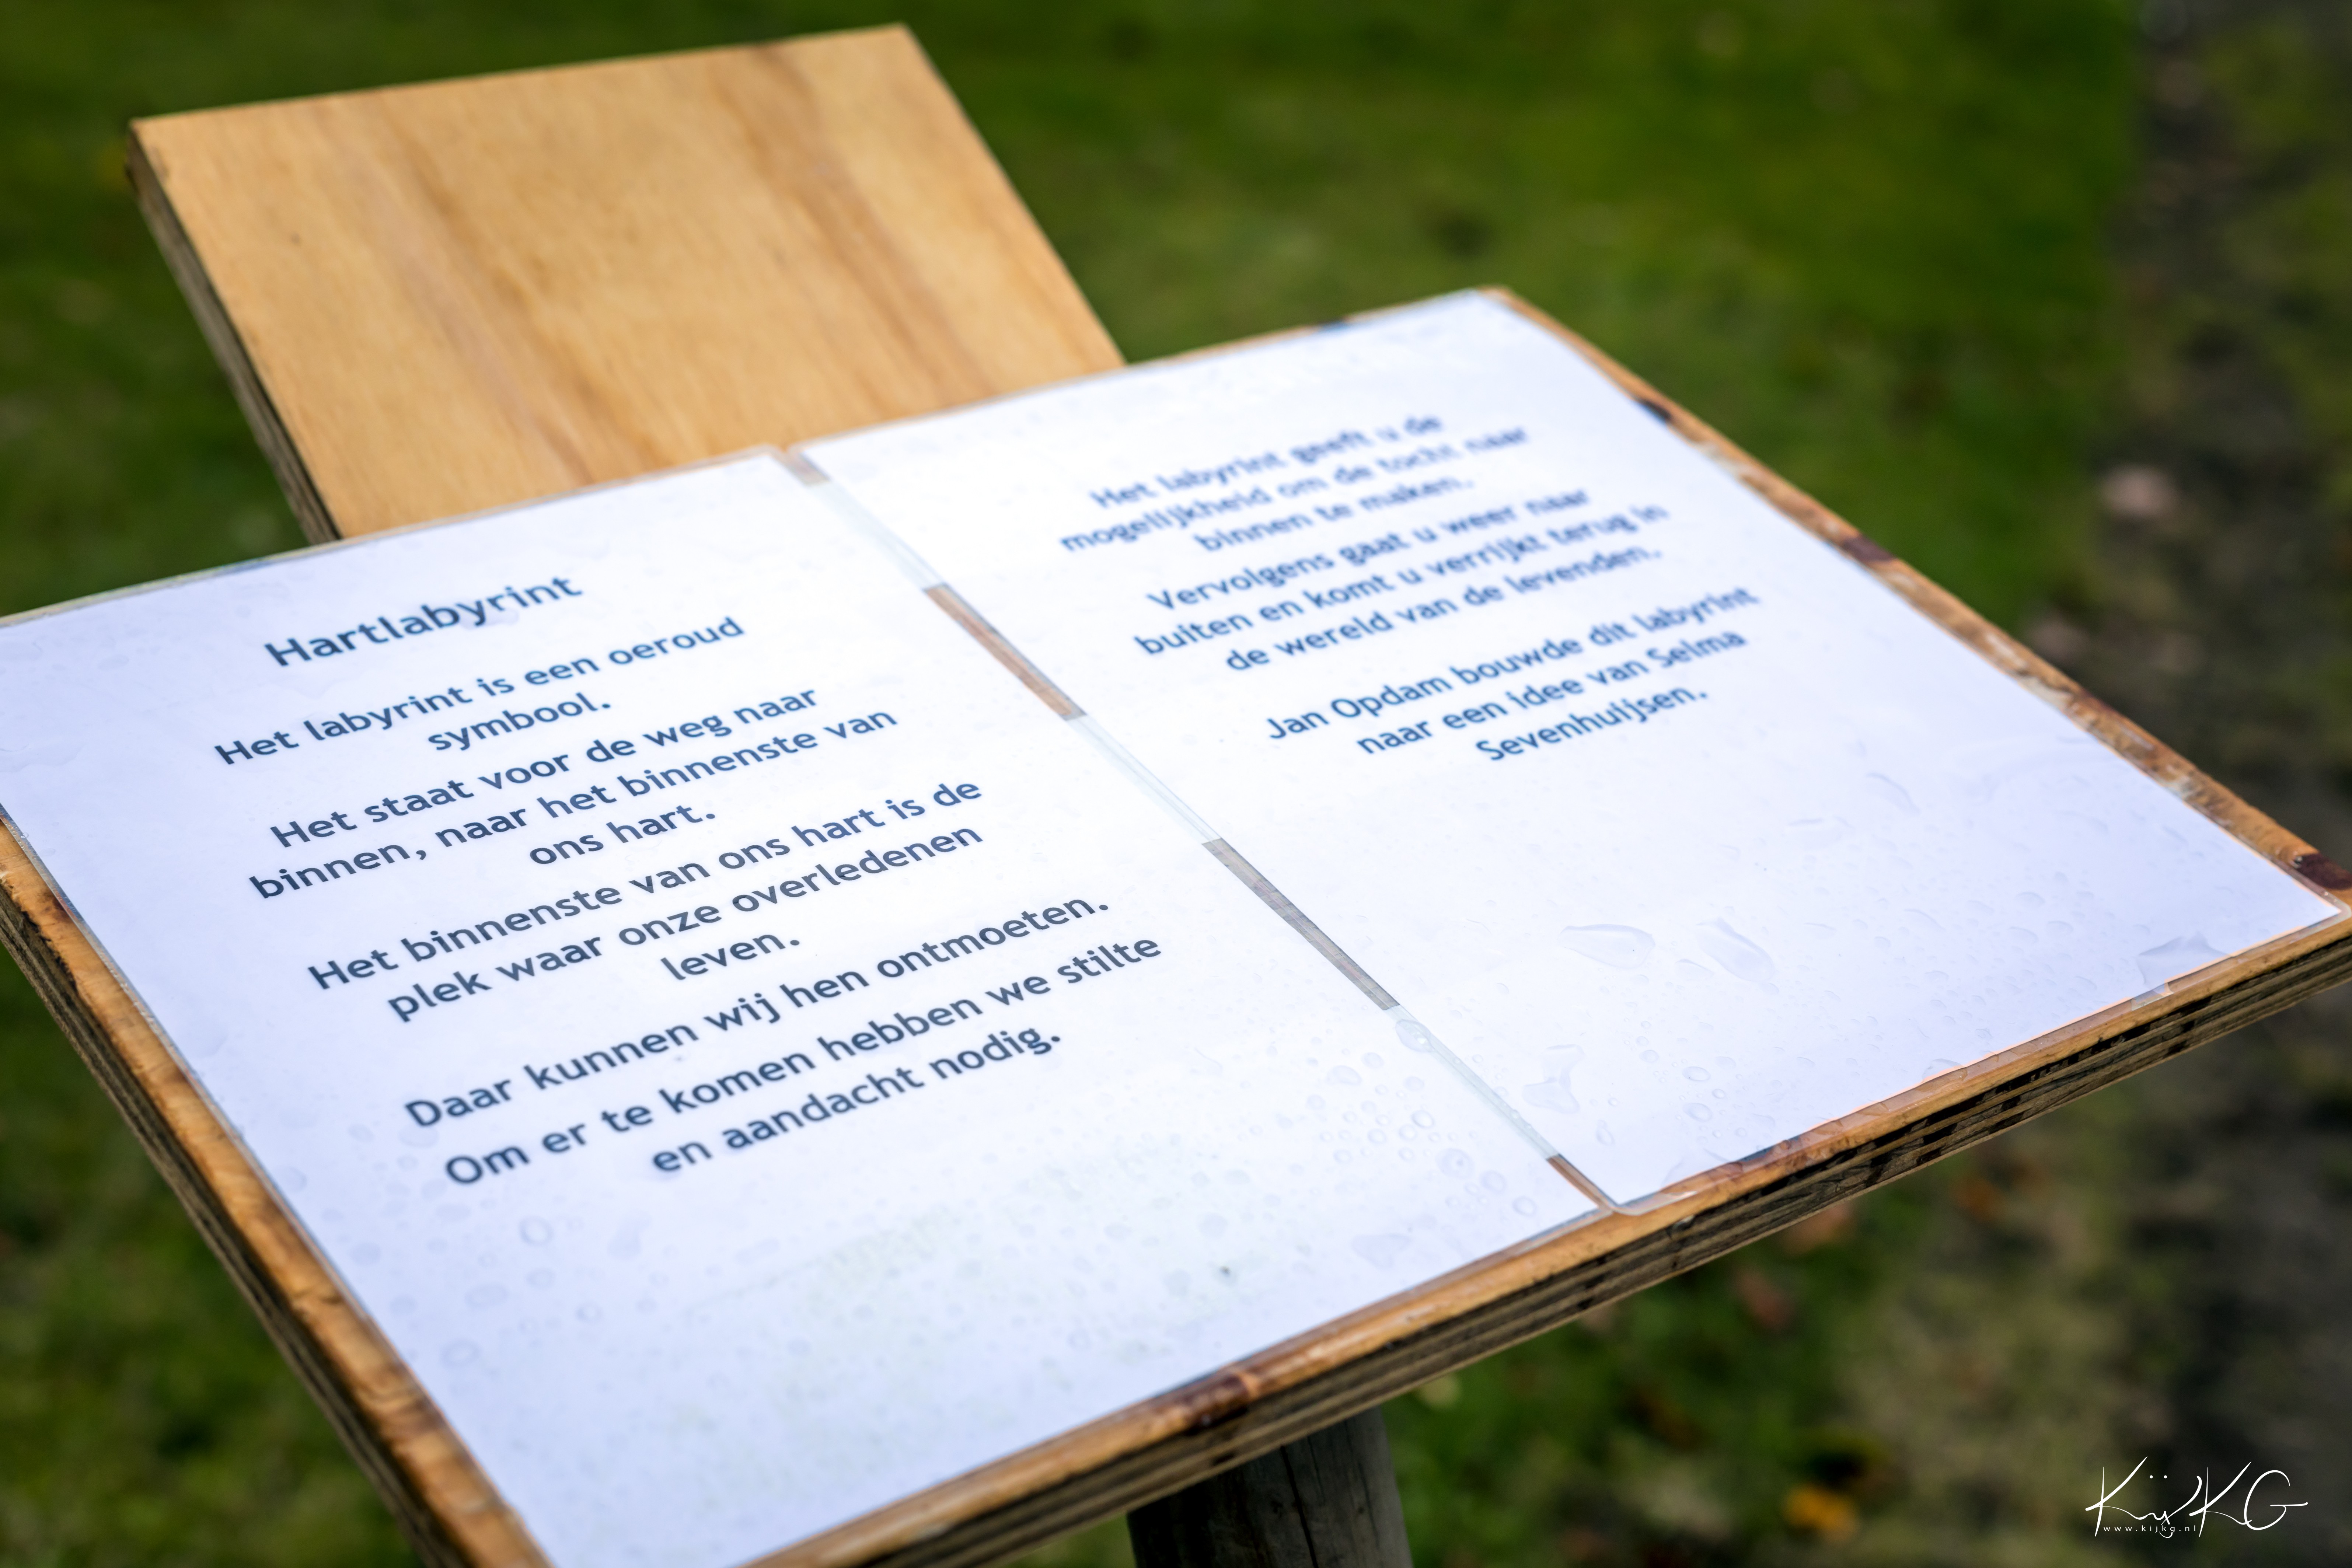 Hartlabyrint
Het labyrint is een oeroud
symbool.
Het staat voor de weg naar
binnen, naar het binnenste van
ons hart.
Het binnenste van ons hart is de
plek waar onze overledenen
leven.
Daar kunnen wij hen ontmoeten.
Om er te komen hebben we stilte
en aandacht nodig.
Het labyrint geeft u de
mogelijkheid om de tocht naar
binnen te maken.
Vervolgens gaat u weer naar
buiten en komt u verrijkt terug in
de wereld van de levenden.
Jan Opdam bouwde dit labyrint
naar een idee van Selma
Sevenhuijsen.
KijKG
www.kijkg.nl